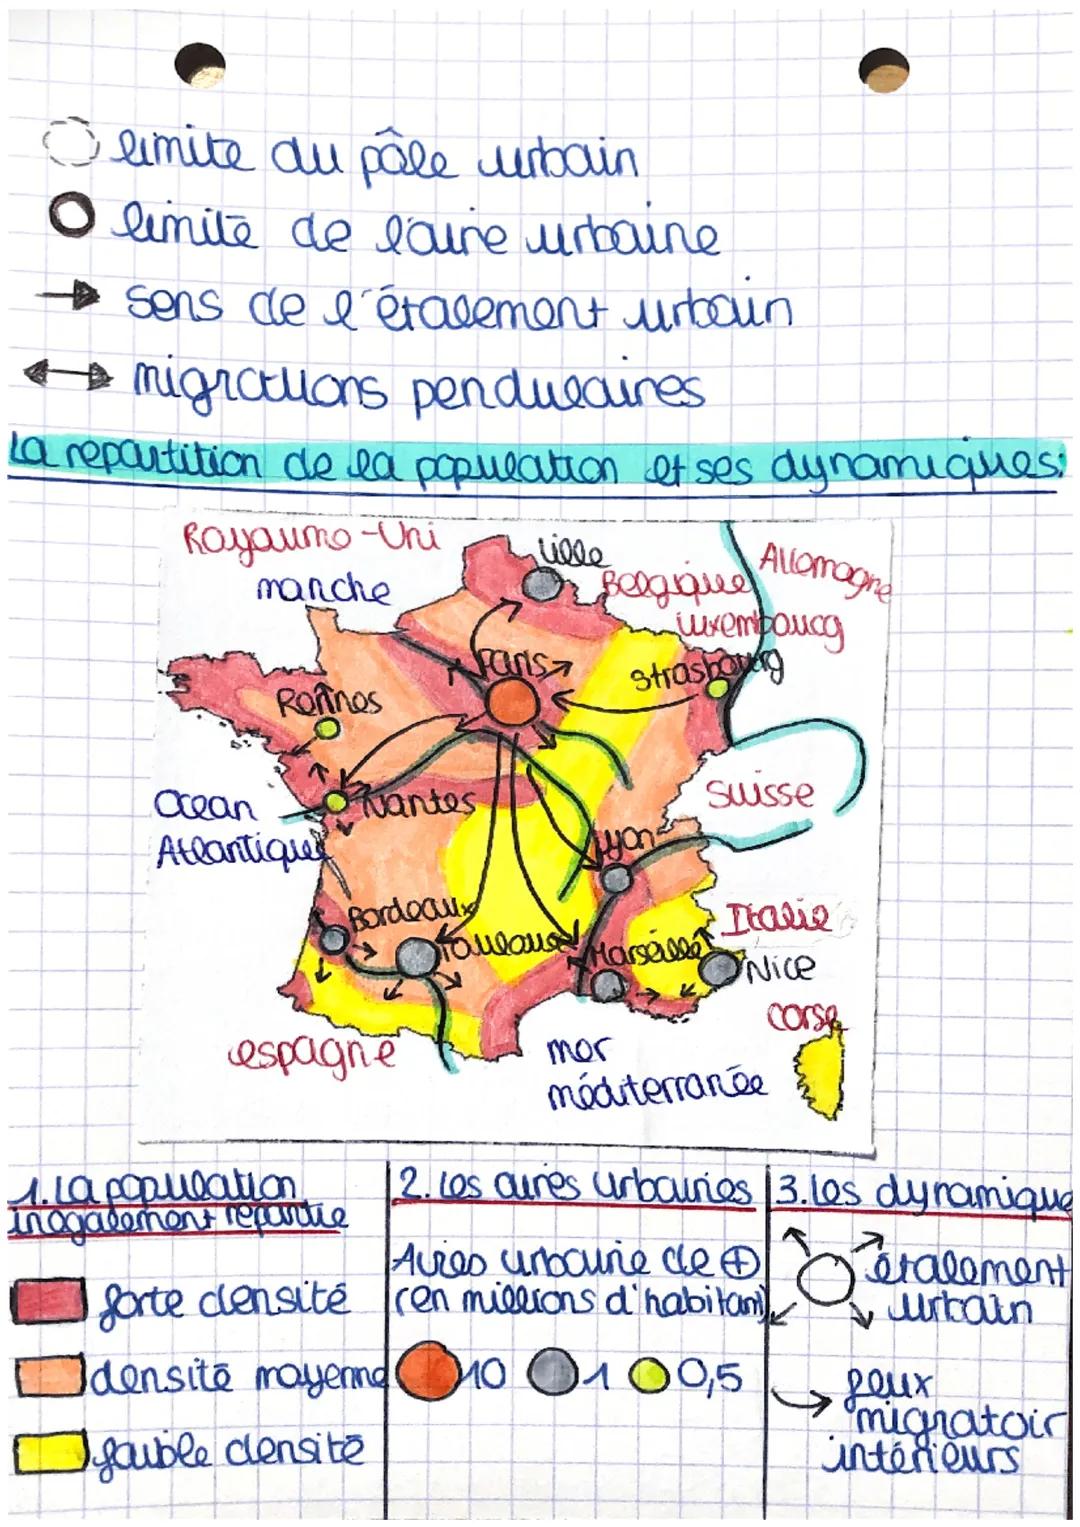 limite du pôle urbain
limite de l'aire urbaine
sens de l'étalement urbain
migrations pendulaires
La repartition de la population et ses dynamiques:
Royaumo-Uni
Lille
Allemagne
manche
Belgique
Luxembourg
Paris
Strasbourg
Rennes
Ocean
Atlantique
Nantes
Suisse
Lyon
Bordeaux
Toulouse
Marseille
Italie
Nice
Corse
espagne
mer
méditerranée
1. La population
inégalement repartie
forte densité
densité moyenne
faible densité
2. Les aires urbaines
Aires urbaine de +
(en millions d'habitant)
10 1 0,5
3. Les dynamique
étalement
urbain
feux
migratoir
intérieurs